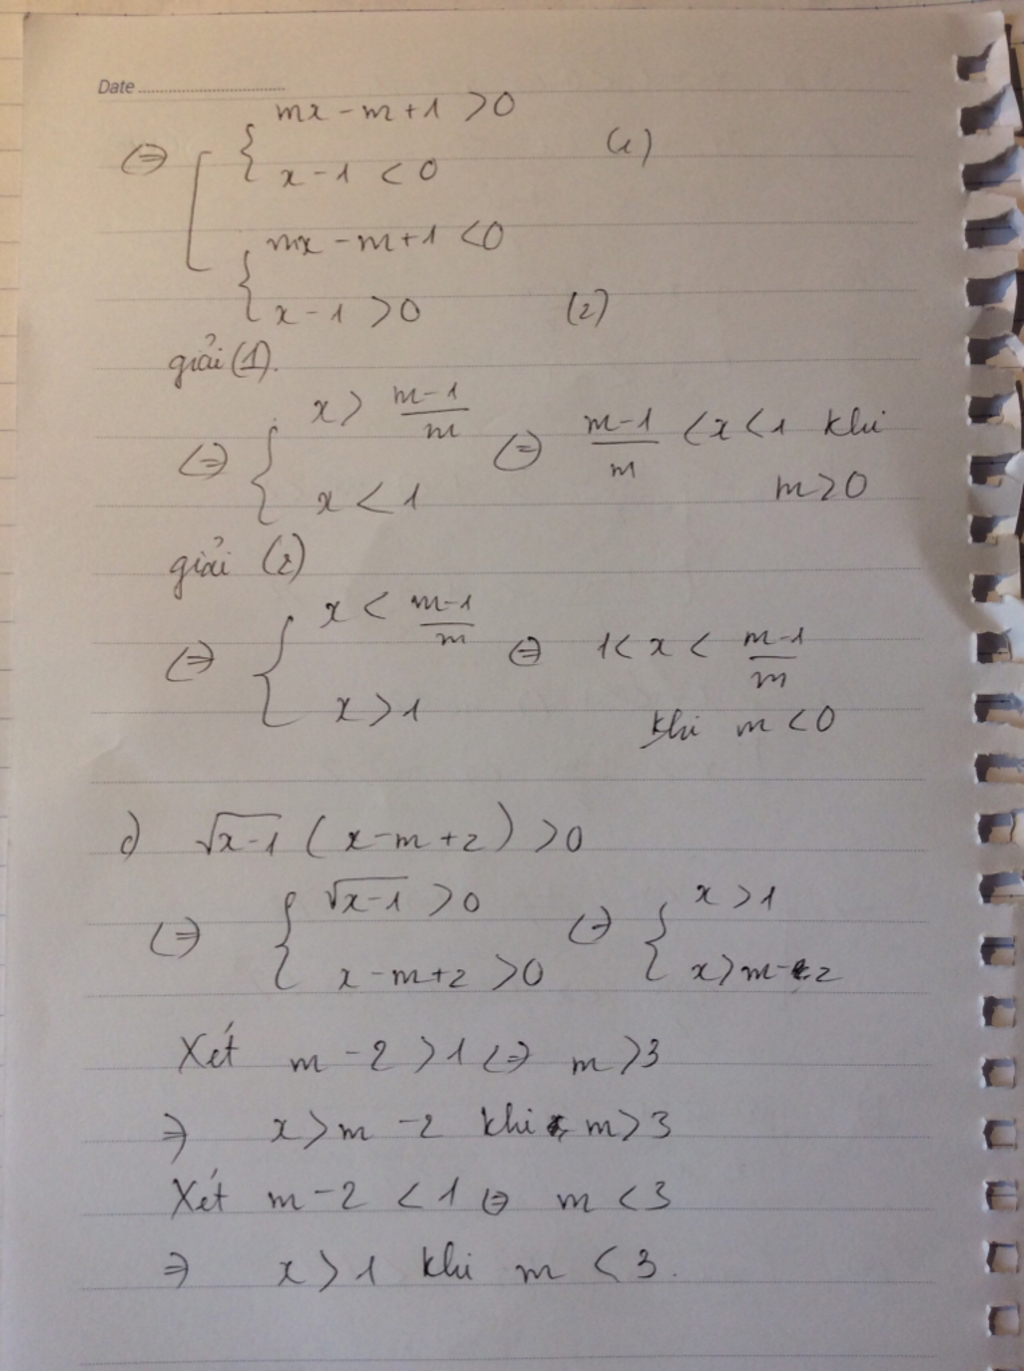 Date
mx - m + 1 > 0
⇔ (1)
x - 1 < 0
mx - m + 1 < 0
x - 1 > 0 (2)
giải (1).
x > \frac{m-1}{m}
⇔ ⇔ \frac{m-1}{m} < x < 1 khi
x < 1 m > 0
giải (2)
x < \frac{m-1}{m}
⇔ ⇔ 1 < x < \frac{m-1}{m}
x > 1
khi m < 0
c) \sqrt{x-1} (x - m + 2) > 0
⇔ { \sqrt{x-1} > 0 ⇔ { x > 1
x - m + 2 > 0 x > m - 2
Xét m - 2 > 1 ⇔ m > 3
⇒ x > m - 2 khi m > 3
Xét m - 2 < 1 ⇔ m < 3
⇒ x > 1 khi m < 3.